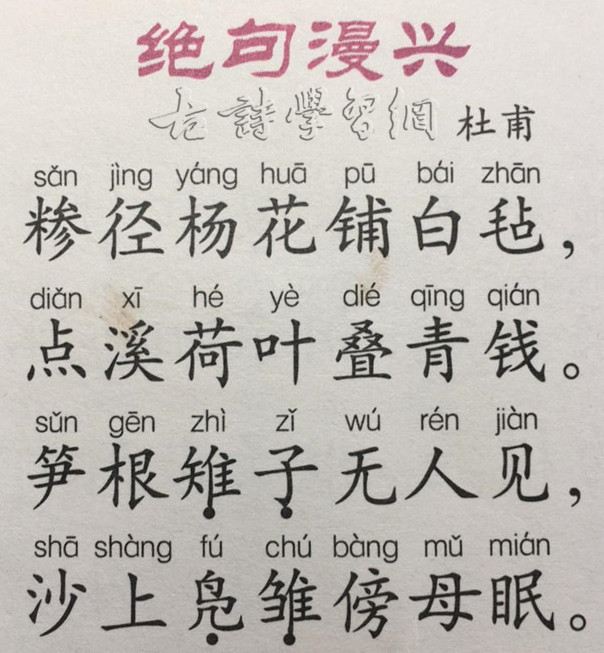 绝句漫兴
古詩學習網 杜甫
sǎn jìng yáng huā pū bái zhān
糁径杨花铺白毡，
diǎn xī hé yè dié qīng qián
点溪荷叶叠青钱。
sǔn gēn zhì zǐ wú rén jiàn
笋根雉子无人见，
shā shàng fú chú bàng mǔ mián
沙上凫雏傍母眠。